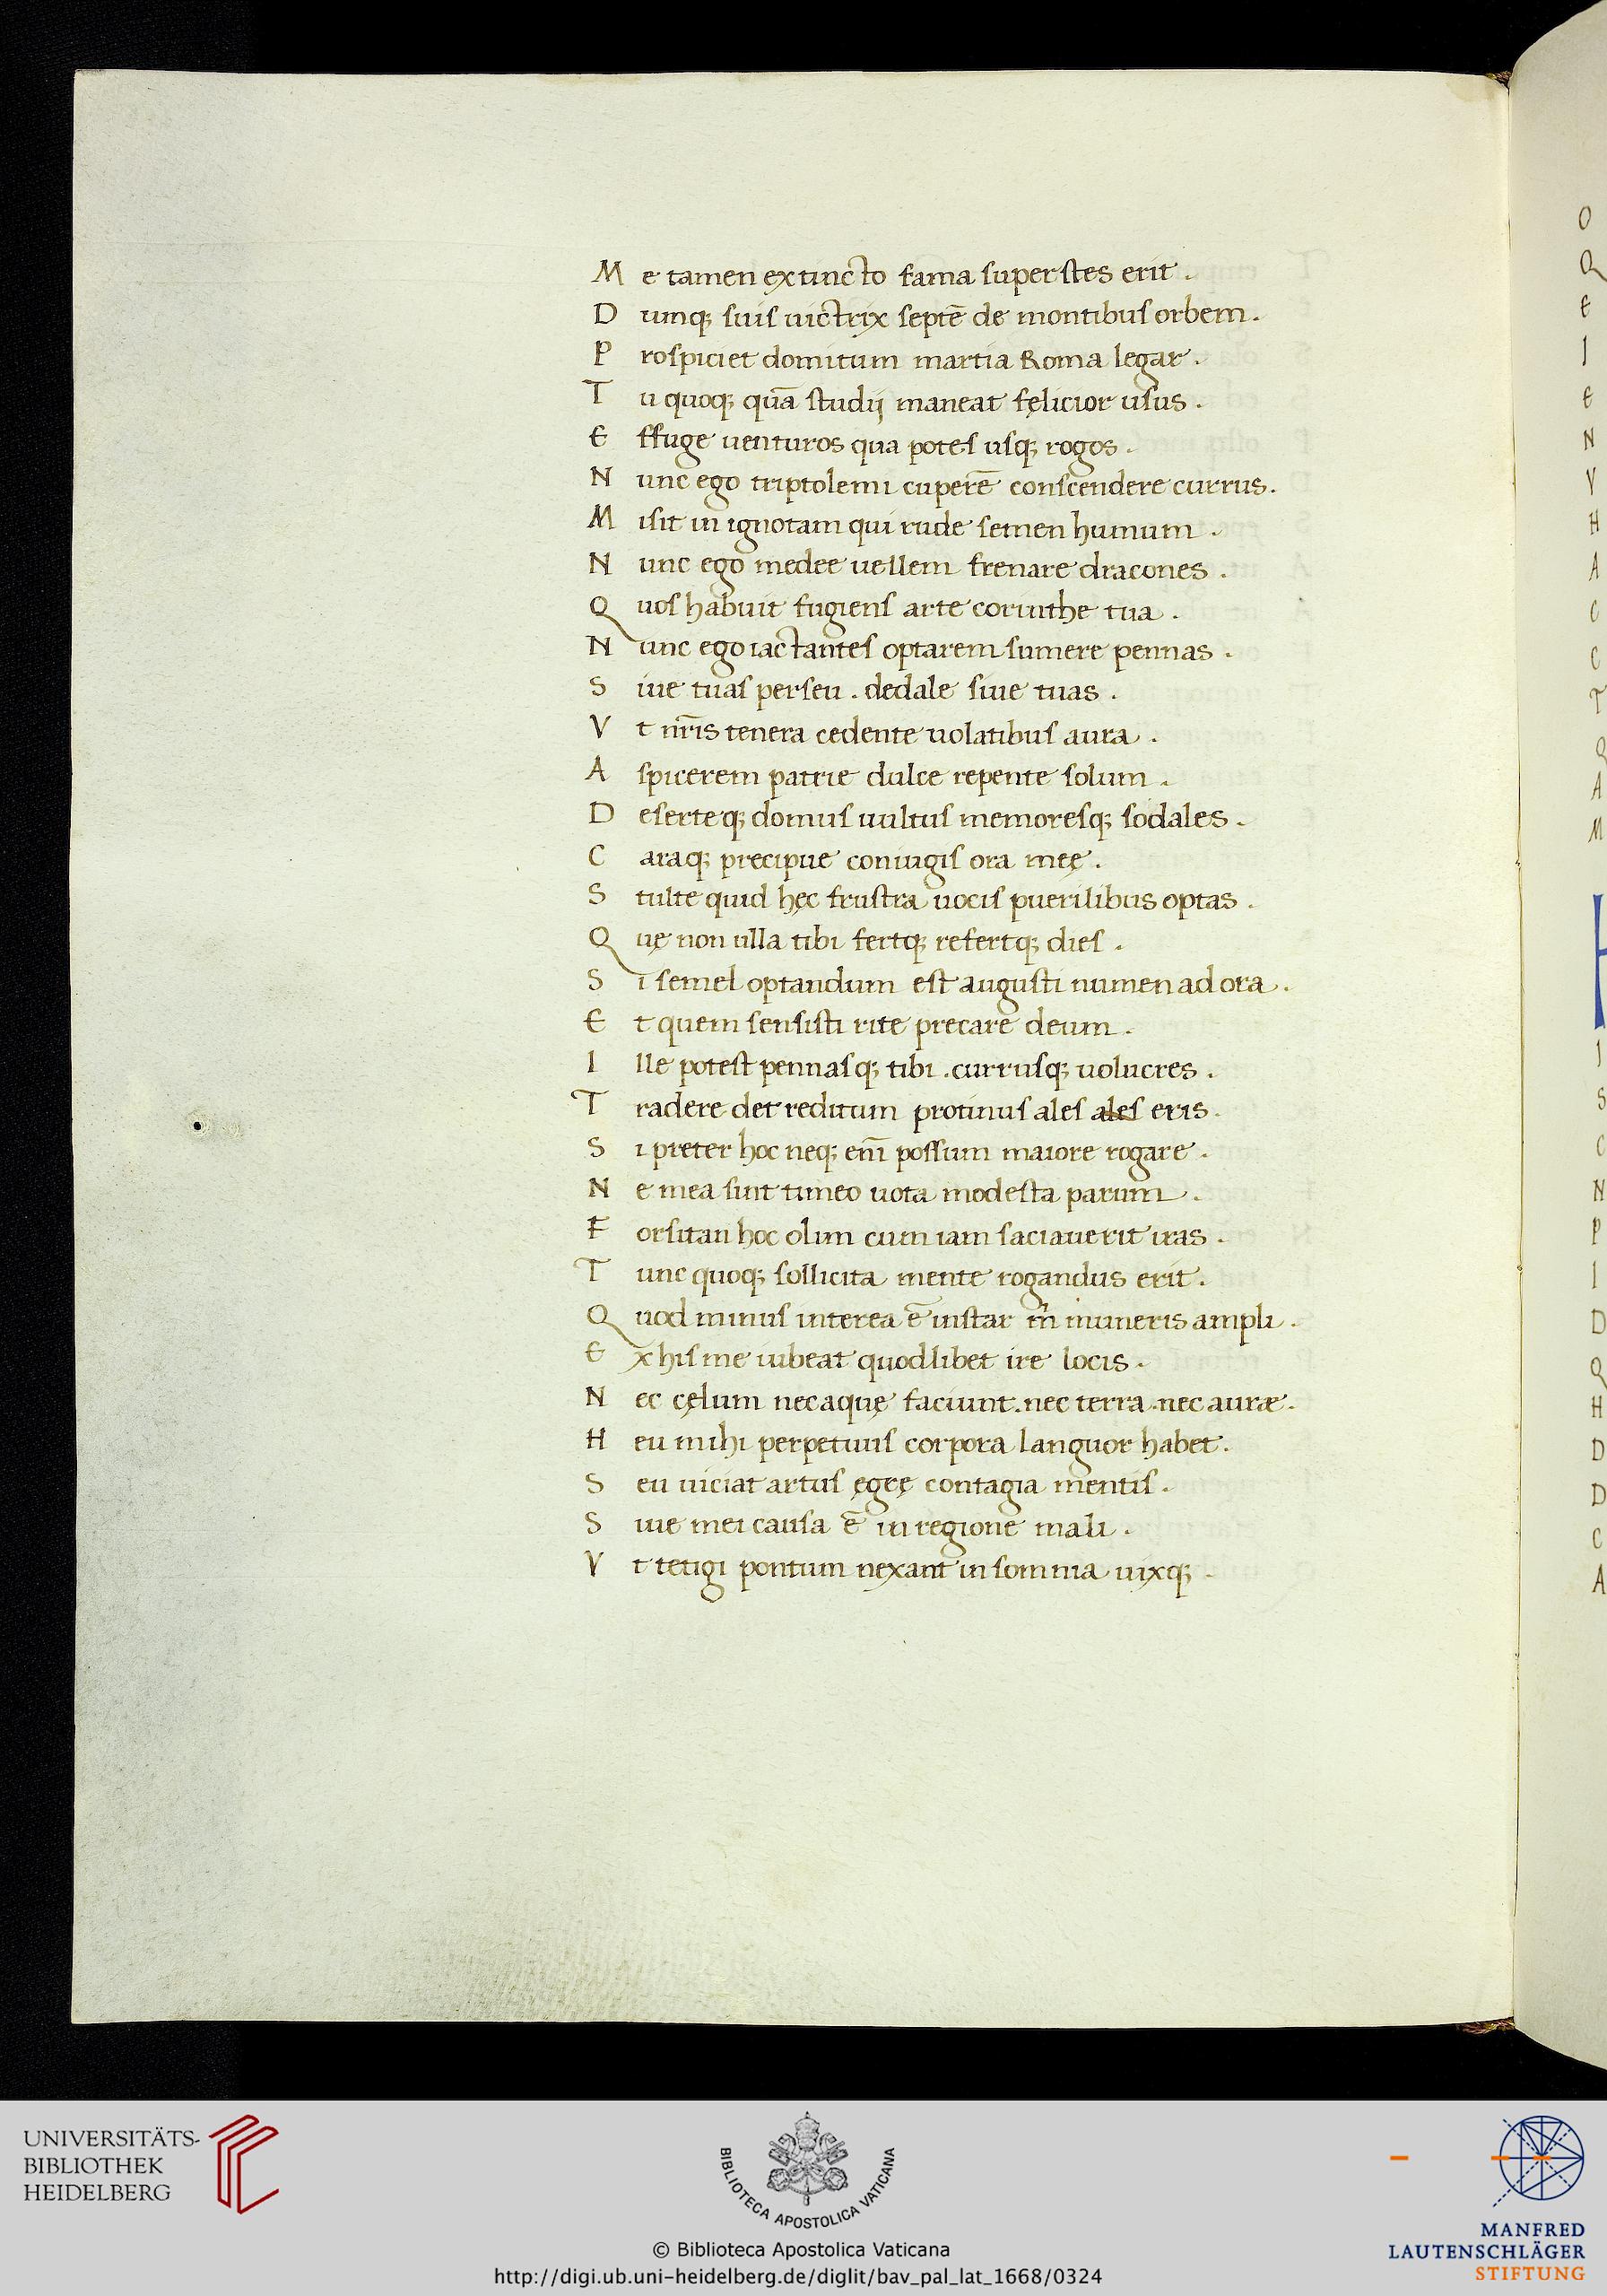 M e tamen extincto fama superstes erit .
D umq; suis uictrix septē de montibus orbem .
P rospiciet domitum martia Roma legar .
T u quoq; quā studij maneat fęlicior usus .
E ffuge uenturos qua potes usq; rogos .
N unc ego triptolemi cuperē conscendere currus .
M isit in ignotam qui rude semen humum .
N unc ego medee uellem frenare dracones .
Q uos habuit fugiens arte corinthe tua .
N unc ego iactantes optarem sumere pennas .
S iue tuas perseu . dedale siue tuas .
V t nr̄is tenera cedente uolatibus aura .
A spicerem patrie dulce repente solum .
D eserteq; domus uultus memoresq; sodales .
C araq; precipue coniugis ora meę .
S tulte quid hęc frustra uocis puerilibus optas .
Q uę non ulla tibi fertq; refertq; dies .
S i semel optandum est augusti numen adora .
E t quem sensisti rite precare deum .
I lle potest pennasq; tibi . currusq; uolucres .
T radere det reditum protinus ales ales eris .
S i preter hoc neq; enī possum maiore rogare .
N e mea sint timeo uota modesta parum .
F orsitan hoc olim cum iam saciauerit iras .
T unc quoq; sollicita mente rogandus erit .
Q uod minus interea ē instar m̄ muneris ampli .
E x his me iubeat quodlibet ire locis .
N ec cęlum nec aquę faciunt . nec terra . nec auræ .
H eu mihi perpetuus corpora languor habet .
S eu uiciat artus ęgrę contagia mentis .
S iue mei causa ē in regione mali .
V t tetigi pontum nexant insomnia uixq; .
O
Q
E
I
E
N
V
H
A
C
C
T
Q
A
M
I
S
C
N
P
I
D
Q
H
D
D
C
A
UNIVERSITÄTS-
BIBLIOTHEK
HEIDELBERG
BIBLIOTECA APOSTOLICA VATICANA
© Biblioteca Apostolica Vaticana
http://digi.ub.uni-heidelberg.de/diglit/bav_pal_lat_1668/0324
MANFRED
LAUTENSCHLÄGER
STIFTUNG